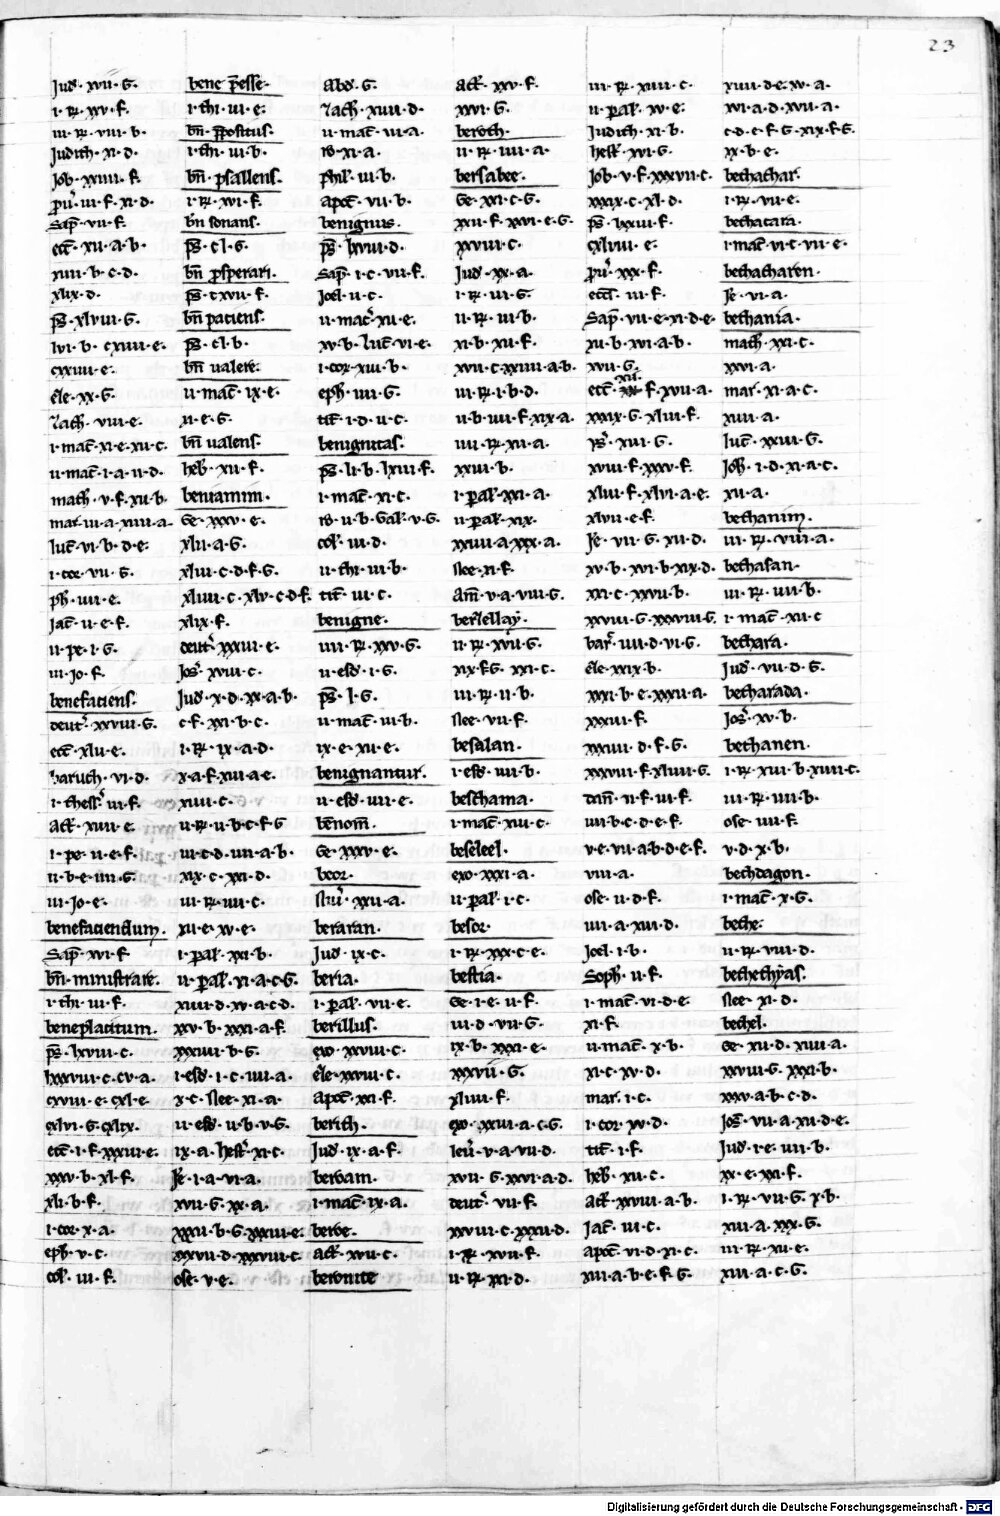 23
Jud̄· xvii· G·
i· R̄· xv· f·
iii· R̄· viii· b·
Judith· xi· d·
Job· xxiiii· f·
Sap̄· vii· f·
ecc̄· xii· a· b·
xiii· b· c· d·
xlix· d·
ps̄· xlviii· G·
lvi· b· cxiiii· e·
cxxiii· e·
ele· xx· G·
zach· viii· e·
i· mac̄· xi· e· xii· c·
ii· mac̄· i· a· ii· d·
math· v· f· xii· b·
mar· iii· a· xiiii· a·
luc̄· vi· b· d· e·
i· cor· vii· G·
ph· iiii· e·
Jac̄· ii· e· f·
ii· pe· i· G·
iii· Jo· f·
benefaciens·
deut᷑· xxviii· G·
ecc̄· xlii· e·
baruch· vi· d·
i· thess᷑· iii· f·
act̄· xiiii· e·
i· pe· ii· e· f·
ii· b· e· iiii· G·
iii· Jo· e·
benefaciendum·
Sap̄· xvi· f·
bn̄· ministrare·
i· thi· iii· f·
beneplacitum·
ps̄· lxviii· c·
lxxxviii· c· cv· a·
cxviii· e· cxl· e·
cxlvi· G· cxlix·
ecc̄· i· f· xxxiii· e·
xxxv· b· xl· f·
xli· b· f·
i· cor· x· a·
eph· v· c·
col̄· iii· f·
bene p̄esse·
i· thi· iii· e·
bn̄· p̄positus·
i· thi· iii· b·
bn̄· psallens·
i· R̄· xvi· f·
bn̄ sonans·
ps̄· cl· G·
bn̄ prosperari·
ps̄· cxvii· f·
bn̄ paciens·
ps̄· cl· b·
bn̄ ualere·
ii· mac̄· ix· e·
xi· e· G·
bn̄ ualens·
heb̄· xii· f·
beniamin·
Ge· xxxv· e·
xlii· a· G·
xliii· c· d· f· G·
xliiii· c· xlv· c· d· f·
xlix· f·
deut᷑· xxxiii· e·
Jos᷑· xviii· c·
Jud̄· x· d· xx· a· b·
c· f· xxi· b· c·
i· R̄· ix· a· d·
x· a· f· xiii· a· e·
xiiii· c·
ii· R̄· ii· b· c· f· G
iii· c· d· iiii· a· b·
xix· c· xxi· d·
iii· R̄· iiii· c·
xii· e· xv· e·
i· paral̄· xxi· b·
ii· paral̄· xi· a· c· G·
xiiii· d· xv· a· c· d·
xxv· b· xxxi· a· f·
xxxiiii· b· G·
i· esd̄· i· c· iiii· a·
x· c· nee· xi· a·
ii· esd̄· ii· b· v· G·
ix· a· hest᷑· xi· c·
Je· i· a· vi· a·
xvii· G· xx· a·
xxxii· b· G· xxxiii· e·
xxxvii· d· xxxviii· c·
ose· v· e·
abd̄· G·
zach· xiiii· d·
ii· mac̄· vi· a·
ro· xi· a·
phil̄· iii· b·
apoc̄· vii· b·
benignus·
ps̄· lxviii· d·
Sap̄· i· c· vii· f·
Joel· ii· c·
ii· mac᷑· xii· e·
xv· b· luc̄· vi· e·
i· cor· xiii· b·
eph· iiii· G·
tit̄· i· d· ii· c·
benignitas·
ps̄· li· b· lxiii· f·
i· mac̄· xi· c·
ro· ii· b· Gal̄· v· G·
col̄· iii· d·
ii· thi· iii· b·
tit̄· iii· c·
benigne·
iiii· R̄· xxv· G·
ii· esd̄· i· G·
ps̄· l· G·
ii· mac̄· iii· b·
ix· e· xii· e·
benignantur·
ii· esd̄· iiii· e·
benom̄·
Ge· xxxv· e·
beor·
nu᷑· xxii· a·
beraran·
Jud̄· ix· c·
beria·
i· paral̄· vii· e·
berillus·
exo· xxviii· c·
ele· xxviii· c·
apoc̄· xxi· f·
berith·
Jud̄· ix· a· f·
beroam·
i· mac̄· ix· a·
beroe·
act̄· xvii· c·
beronite
act̄· xxv· f·
xxvi· G·
beroth·
ii· R̄· iiii· a·
bersabee·
Ge· xxi· c· G·
xxii· f· xxvi· e· G·
xxviii· c·
Jud̄· xx· a·
i· R̄· iii· G·
ii· R̄· iii· b·
xi· b· xii· f·
xvii· c· xxiiii· a· b·
iii· R̄· i· b· d·
ii· b· iiii· f· xix· a·
iiii· R̄· xii· a·
xxiii· b·
i· paral̄· xxi· a·
ii· paral̄· xix·
xxiiii· a· xxx· a·
nee· xi· f·
am̄· v· a· viii· G·
berzellay·
ii· R̄· xvii· G·
xix· f· G· xxi· c·
iii· R̄· ii· b·
nee· vii· f·
besalan·
i· esd̄· iiii· b·
beschama·
i· mac̄· xiii· c·
beseleel·
exo· xxxi· a·
ii· paral̄· i· c·
besor·
i· R̄· xxx· c· e·
bestia·
Ge· i· e· ii· f·
iii· d· vii· G·
ix· b· xxxi· e·
xxxvii· G·
xliiii· f·
exo· xxiii· a· c· G·
leu᷑· v· a· vii· d·
xvii· G· xxvi· a· d·
deut᷑· vii· f·
xxviii· c· xxxii· d·
i· R̄· xvii· f·
ii· R̄· xxi· d·
iii· R̄· xiii· c·
ii· paral̄· xv· e·
Judith· xi· b·
hest᷑· xvi· G·
Job· v· f· xxxvii· c·
xxxix· c· xl· d·
ps̄· lxxii· f·
cxlviii· e·
pu᷑· xxx· f·
eccs̄· iii· f·
Sap̄· vii· e· xi· d· e·
xii· b· xvi· a· b·
xvii· G·
xxxix· G· xliii· f·
ys᷑· xiii· G·
xviii· f· xxxv· f·
xliii· f· xlvi· a· e·
xlvii· e· f·
Je· vii· G· xii· d·
xv· b· xvi· b· xix· d·
xxi· c· xxvii· b·
xxviii· G· xxxviii· G·
bar᷑· iiii· d· vi· G·
ele· xxix· b·
xxxi· b· e· xxxii· a·
xxxiii· f·
xxxiiii· d· f· G·
xxxviii· f· xliiii· G·
dan̄· ii· f· iii· f·
iiii· b· c· d· e· f·
v· e· vii· a· b· d· e· f·
viii· a·
ose· ii· d· f·
iiii· a· xiii· d·
Joel· i· b·
Soph· ii· f·
i· mac̄· vi· d· e·
xi· f·
ii· mac̄· x· b·
xi· c· xv· d·
mar· i· c·
i· cor· xv· d·
tit̄· i· f·
heb̄· xii· c·
act̄· xxviii· a· b·
Jac̄· iii· c·
apoc̄· vi· d· xi· c·
xiii· a· b· e· f· G·
xiiii· d· e· xv· a·
xvi· a· d· xvii· a·
c· d· e· f· G· xix· f· G·
xx· b· e·
bethachar·
i· R̄· vii· e·
bethacara·
i· mac̄· vi· c· vii· e·
bethacharen·
Je· vi· a·
bethania·
math· xxi· c·
xxvi· a·
mar· xi· a· c·
xiiii· a·
luc̄· xxiiii· G·
Joh̄· i· d· xi· a· c·
xii· a·
bethanim·
iii· R̄· viii· a·
bethasan·
iii· R̄· iiii· b·
i· mac̄· xii· c
bethara·
Jud̄· vii· d· G·
betharada·
Jos᷑· xv· b·
bethanen·
i· R̄· xiii· b· xiiii· c·
iii· R̄· iiii· b·
ose· iiii· f·
v· d· x· b·
bethdagon·
i· mac̄· x· G·
bethe·
ii· R̄· viii· d·
bethethyas·
nee· xi· d·
bethel·
Ge· xii· d· xiii· a·
xxviii· G· xxxi· b·
xxxv· a· b· c· d·
Jos᷑· vii· a· xii· d· e·
Jud̄· i· e· iiii· b·
xx· e· xxi· f·
i· R̄· vii· G· x· b·
xiii· a· xxx· G·
iii· R̄· xii· e·
xiii· a· c· G·
Digitalisierung gefördert durch die Deutsche Forschungsgemeinschaft - DFG